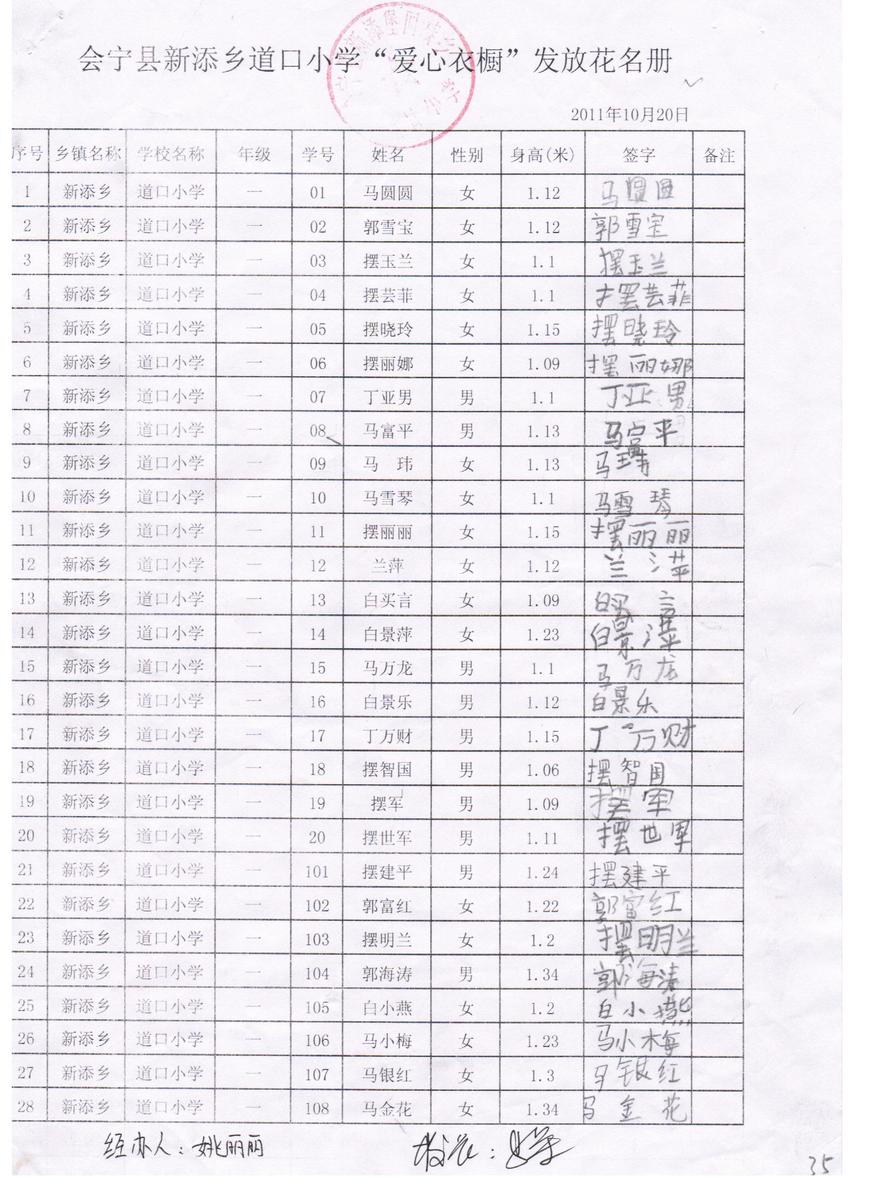 会宁县新添乡道口小学“爱心衣橱”发放花名册
2011年10月20日
序号 乡镇名称 学校名称 年级 学号 姓名 性别 身高(米) 签字 备注
1 新添乡 道口小学 一 01 马圆圆 女 1.12 马圆圆
2 新添乡 道口小学 一 02 郭雪宝 女 1.12 郭雪宝
3 新添乡 道口小学 一 03 摆玉兰 女 1.1 摆玉兰
4 新添乡 道口小学 一 04 摆芸菲 女 1.1 摆芸菲
5 新添乡 道口小学 一 05 摆晓玲 女 1.15 摆晓玲
6 新添乡 道口小学 一 06 摆丽娜 女 1.09 摆丽娜
7 新添乡 道口小学 一 07 丁亚男 男 1.1 丁亚男
8 新添乡 道口小学 一 08 马富平 男 1.13 马富平
9 新添乡 道口小学 一 09 马 玮 女 1.13 马玮
10 新添乡 道口小学 一 10 马雪琴 女 1.1 马雪琴
11 新添乡 道口小学 一 11 摆丽丽 女 1.15 摆丽丽
12 新添乡 道口小学 一 12 兰萍 女 1.12 兰萍
13 新添乡 道口小学 一 13 白买言 女 1.09 白买言
14 新添乡 道口小学 一 14 白景萍 女 1.23 白景萍
15 新添乡 道口小学 一 15 马万龙 男 1.1 马万龙
16 新添乡 道口小学 一 16 白景乐 男 1.12 白景乐
17 新添乡 道口小学 一 17 丁万财 男 1.15 丁万财
18 新添乡 道口小学 一 18 摆智国 男 1.06 摆智国
19 新添乡 道口小学 一 19 摆军 男 1.09 摆军
20 新添乡 道口小学 一 20 摆世军 男 1.11 摆世军
21 新添乡 道口小学 一 101 摆建平 男 1.24 摆建平
22 新添乡 道口小学 一 102 郭富红 女 1.22 郭富红
23 新添乡 道口小学 一 103 摆明兰 女 1.2 摆明兰
24 新添乡 道口小学 一 104 郭海涛 男 1.34 郭海涛
25 新添乡 道口小学 一 105 白小燕 女 1.2 白小燕
26 新添乡 道口小学 一 106 马小梅 女 1.23 马小梅
27 新添乡 道口小学 一 107 马银红 女 1.3 马银红
28 新添乡 道口小学 一 108 马金花 女 1.34 马金花
经办人：姚丽丽 校长：
35